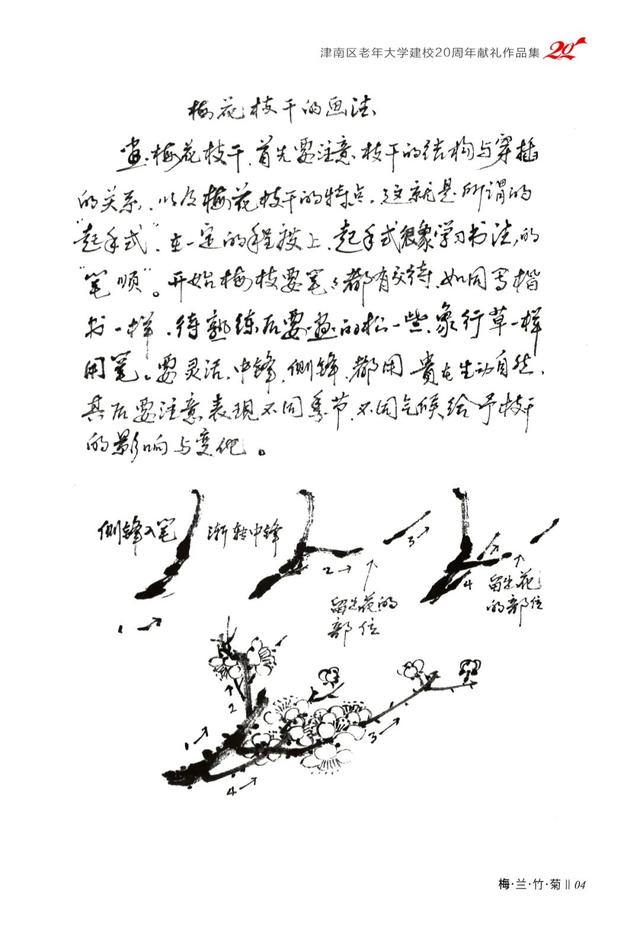 津南区老年大学建校20周年献礼作品集 20
梅花枝干的画法
画梅花枝干,首先要注意枝干的结构与穿插
的关系,以及梅花枝干的特点,这就是所谓的
“起手式”,在一定的程度上,起手式很象学习书法的
“笔顺”。开始梅枝要笔笔都有交待,如同写楷
书一样,待熟练后要画的松一些,象行草一样
用笔。要灵活,中锋,侧锋,都用,贵在生动自然,
其后要注意表现不同季节,不同气候给予枝干
的影响与变化。
侧锋入笔 渐转中锋
1
2
留出花的
部位
3
4
留出花
的部位
1
2
3
4
梅·兰·竹·菊 || 04